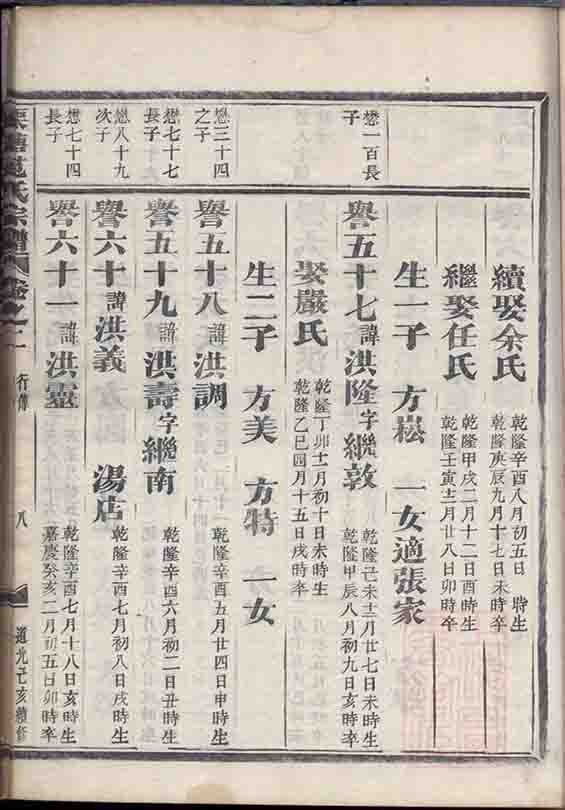 續娶余氏 乾隆辛酉八月初五日 時生
乾隆庚辰九月十七日未時卒
繼娶任氏 乾隆甲戌二月十二日酉時生
乾隆壬寅十二月廿八日卯時卒
生一子 方崧 一女適張家
懋一百長
子
譽五十七諱洪隆字繼敦 乾隆己未十二月廿七日未時生
乾隆甲辰八月初九日亥時卒
娶嚴氏 乾隆丁卯十二月初十日未時生
乾隆乙巳四月十五日戌時卒
生二子 方美 方特 一女
懋三十四
之子
譽五十八諱洪調 乾隆辛酉五月廿四日申時生
懋七十七
長子
譽五十九諱洪壽字繼南 乾隆辛酉六月初二日丑時生
懋八十九
次子
譽六十諱洪義 湯店 乾隆辛酉七月初八日戌時生
懋七十四
長子
譽六十一諱洪靈 乾隆辛酉七月十八日亥時生
嘉慶癸亥二月初五日卯時卒
氏宗譜 卷之一 行傳 八 道光己亥續修